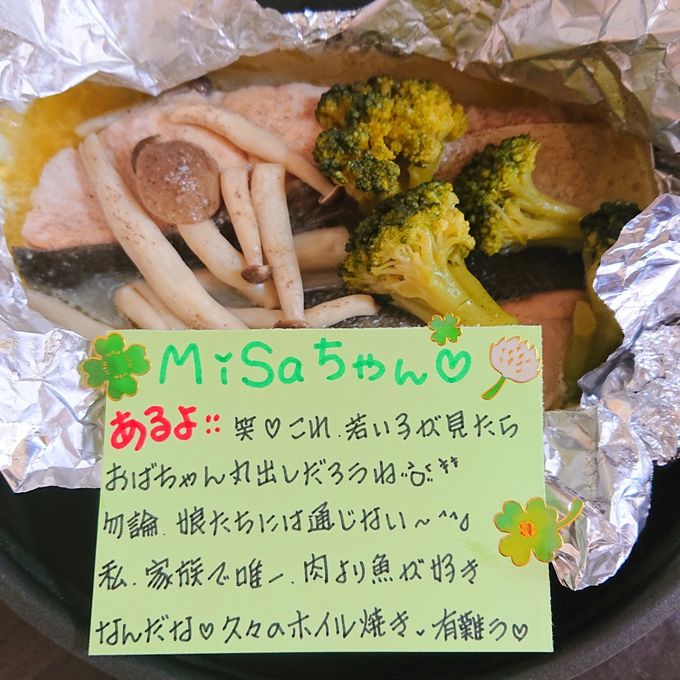 MiSaちゃん♡
あるよ!! 笑♡これ、若い子が見たら
おばちゃん丸出しだろうね
勿論、娘たちには通じない〜^^;
私、家族で唯一、肉より魚が好き
なんだな♡久々のホイル焼き、有難う♡